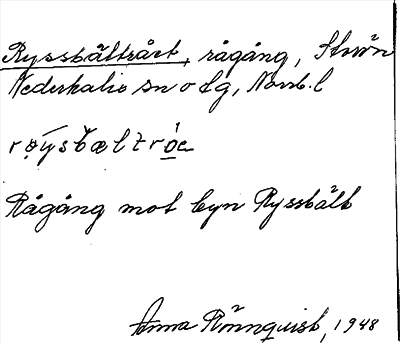 Ryssbältrået, rågång, Strön
Nederkalix sn o lg, Norrb. l
Rågång mot byn Ryssbält
Anna Rönnquist, 1948